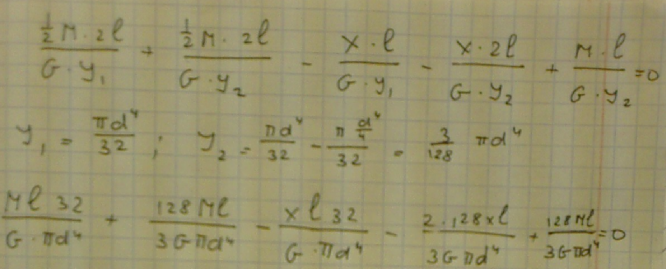 ½M·2l/(G·y₁) + ½M·2l/(G·y₂) - x·l/(G·y₁) - x·2l/(G·y₂) + M·l/(G·y₂) = 0
y₁ = πd⁴/32 ; y₂ = πd⁴/32 - (π d⁴/4)/32 = 3/128 πd⁴
Ml 32/(G·πd⁴) + 128Ml/(3Gπd⁴) - xl 32/(G·πd⁴) - 2·128xl/(3Gπd⁴) + 128Ml/(3Gπd⁴) = 0